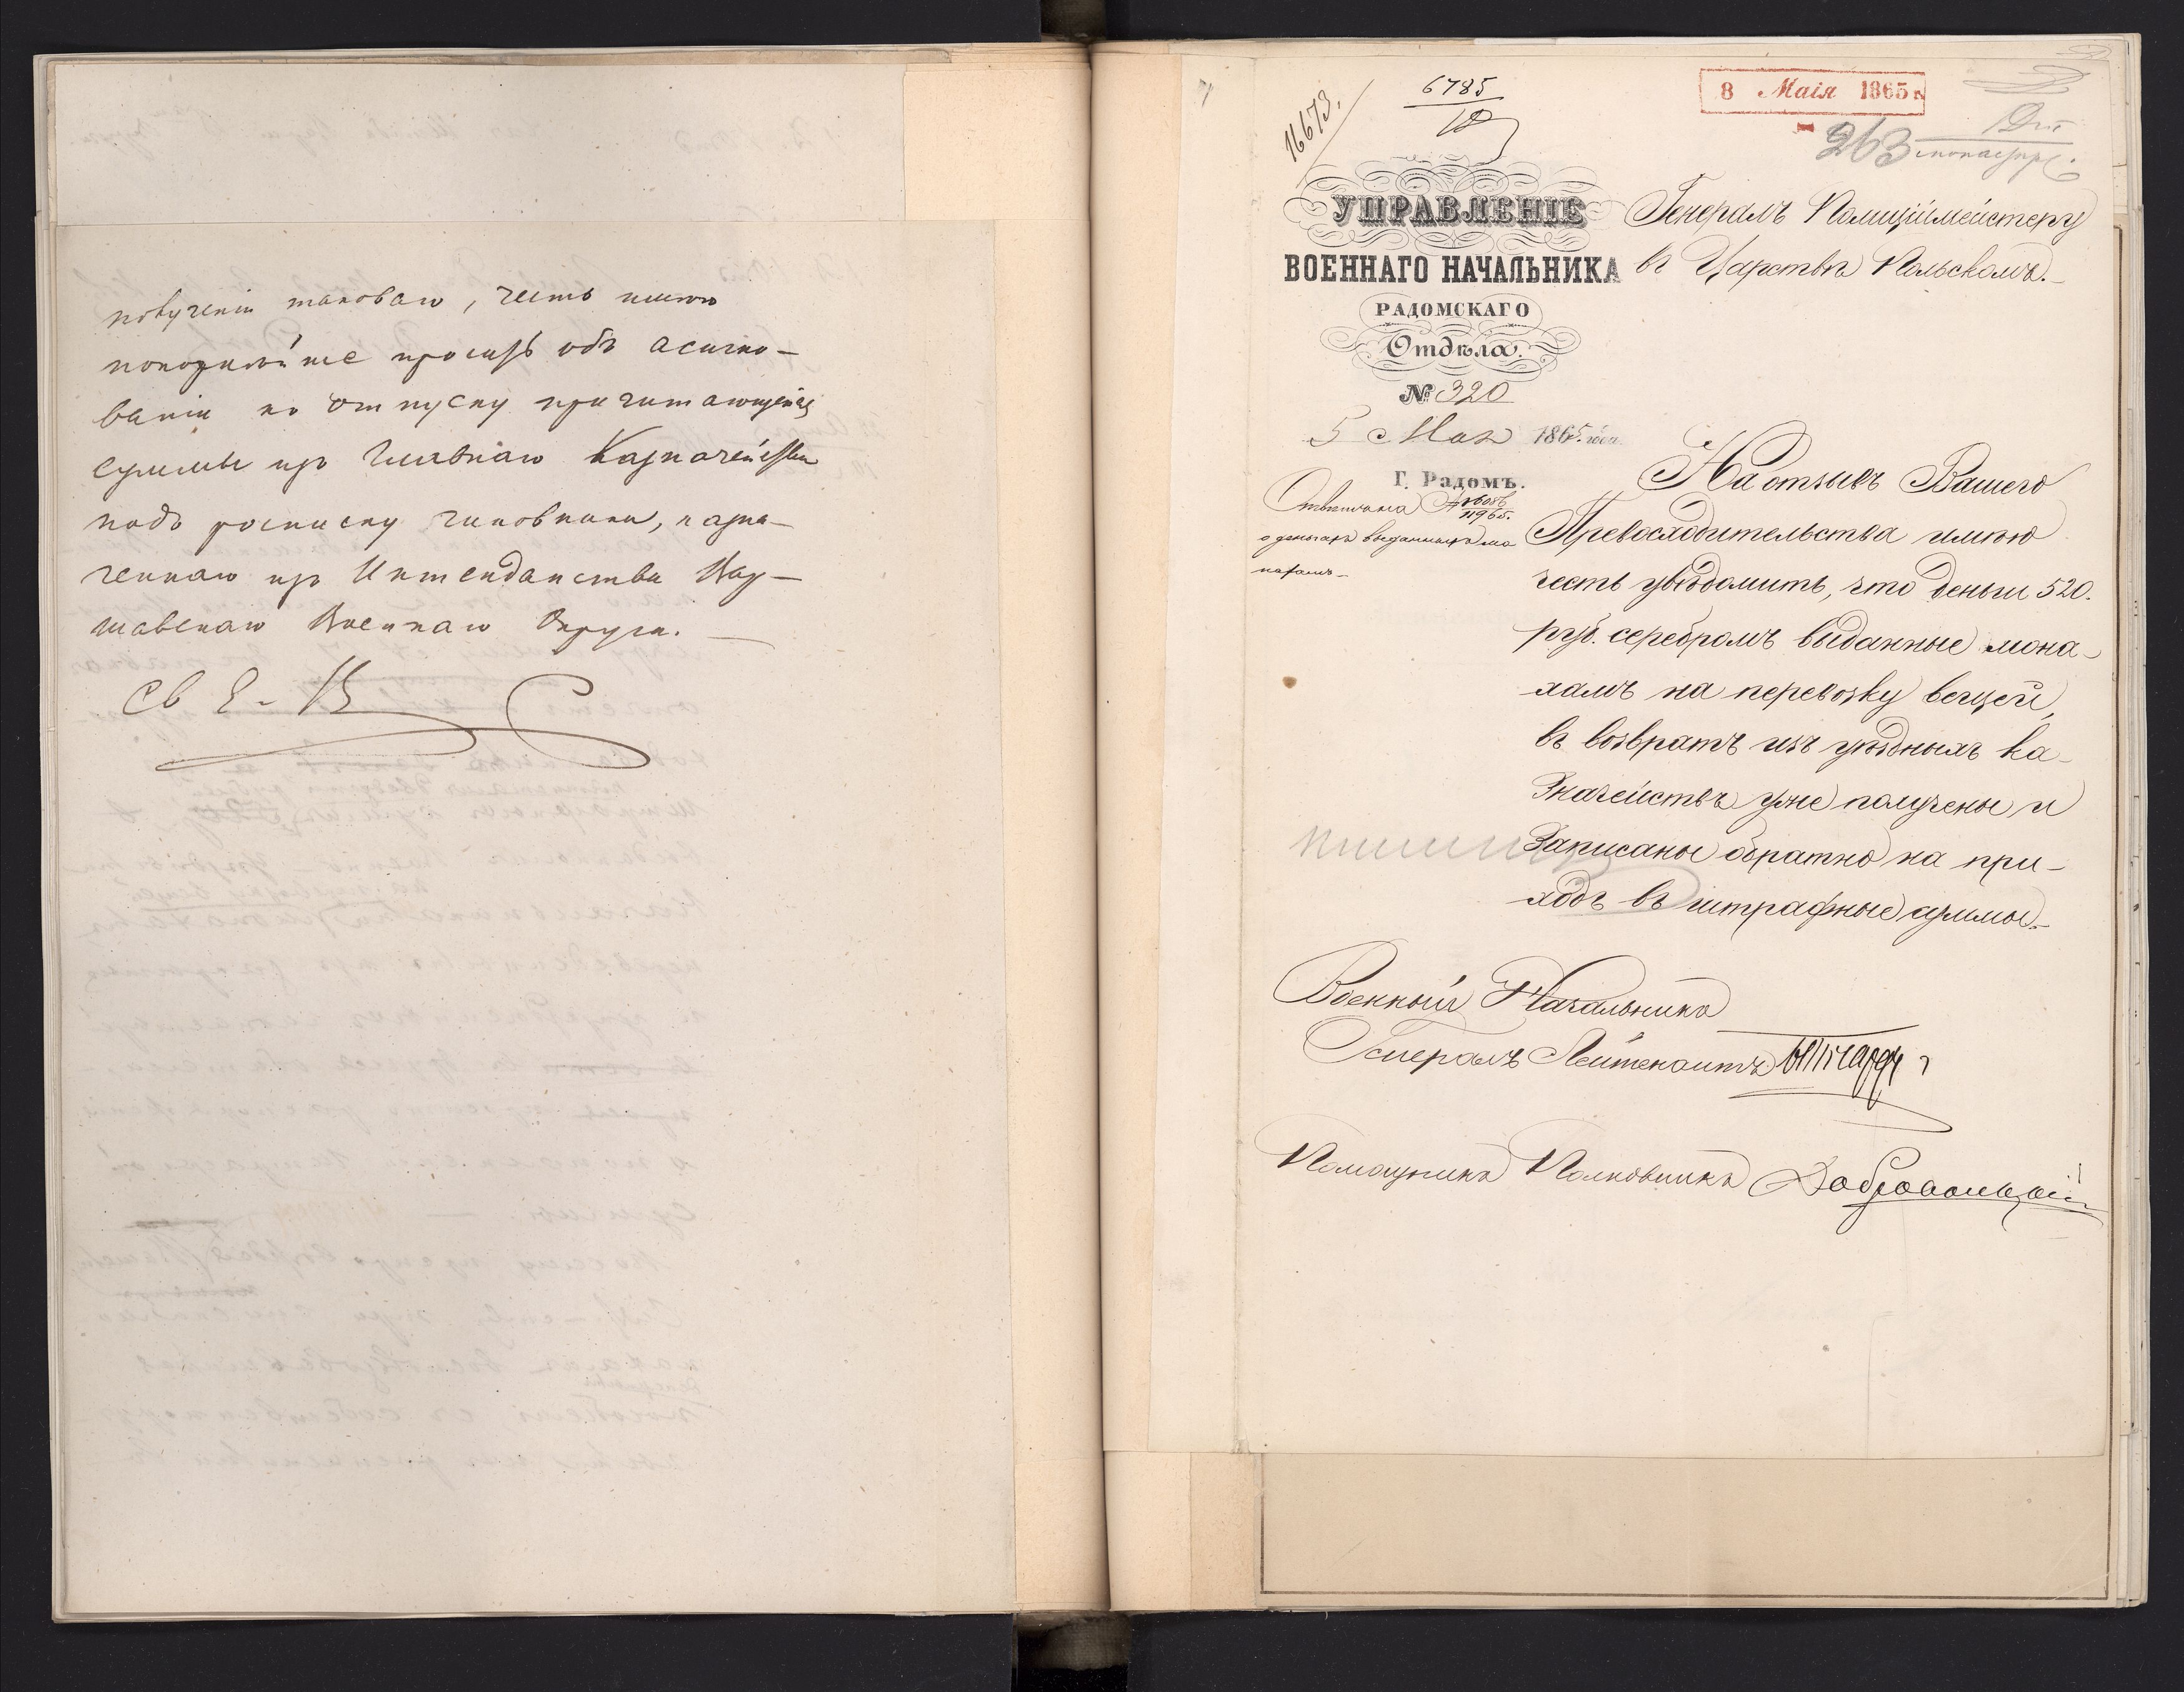 полученiи таковаго, честь имѣю
покорнѣйше просить объ асигно-
ванiи къ отпуску причитающейся
суммы изъ Главнаго Казначейства
подъ росписку чиновника, назна-
ченнаго изъ Интендантства Вар-
шавскаго Военнаго Округа.
16673.
6785
8 Маiя 1865 г.
263
УПРАВЛЕНIЕ
ВОЕННАГО НАЧАЛЬНИКА
РАДОМСКАГО
Отдѣла.
№ 320
5 Мая 1865 года.
Г. Радомъ.
о деньгахъ выданныхъ мо
нахамъ
Генералъ Полицiймейстеру
въ Царствѣ Польскомъ.
На отзывъ Вашего
Превосходительства имѣю
честь увѣдомить, что деньги 520.
руб. серебромъ выданные мона-
хамъ на перевозку вещей,
въ возвратъ изъ уѣздныхъ ка-
значействъ уже получены и
записаны обратно на при-
ходъ въ штрафные суммы.
Военный Начальникъ
Генералъ Лейтенантъ
Помощникъ Полковникъ Добровольскiй